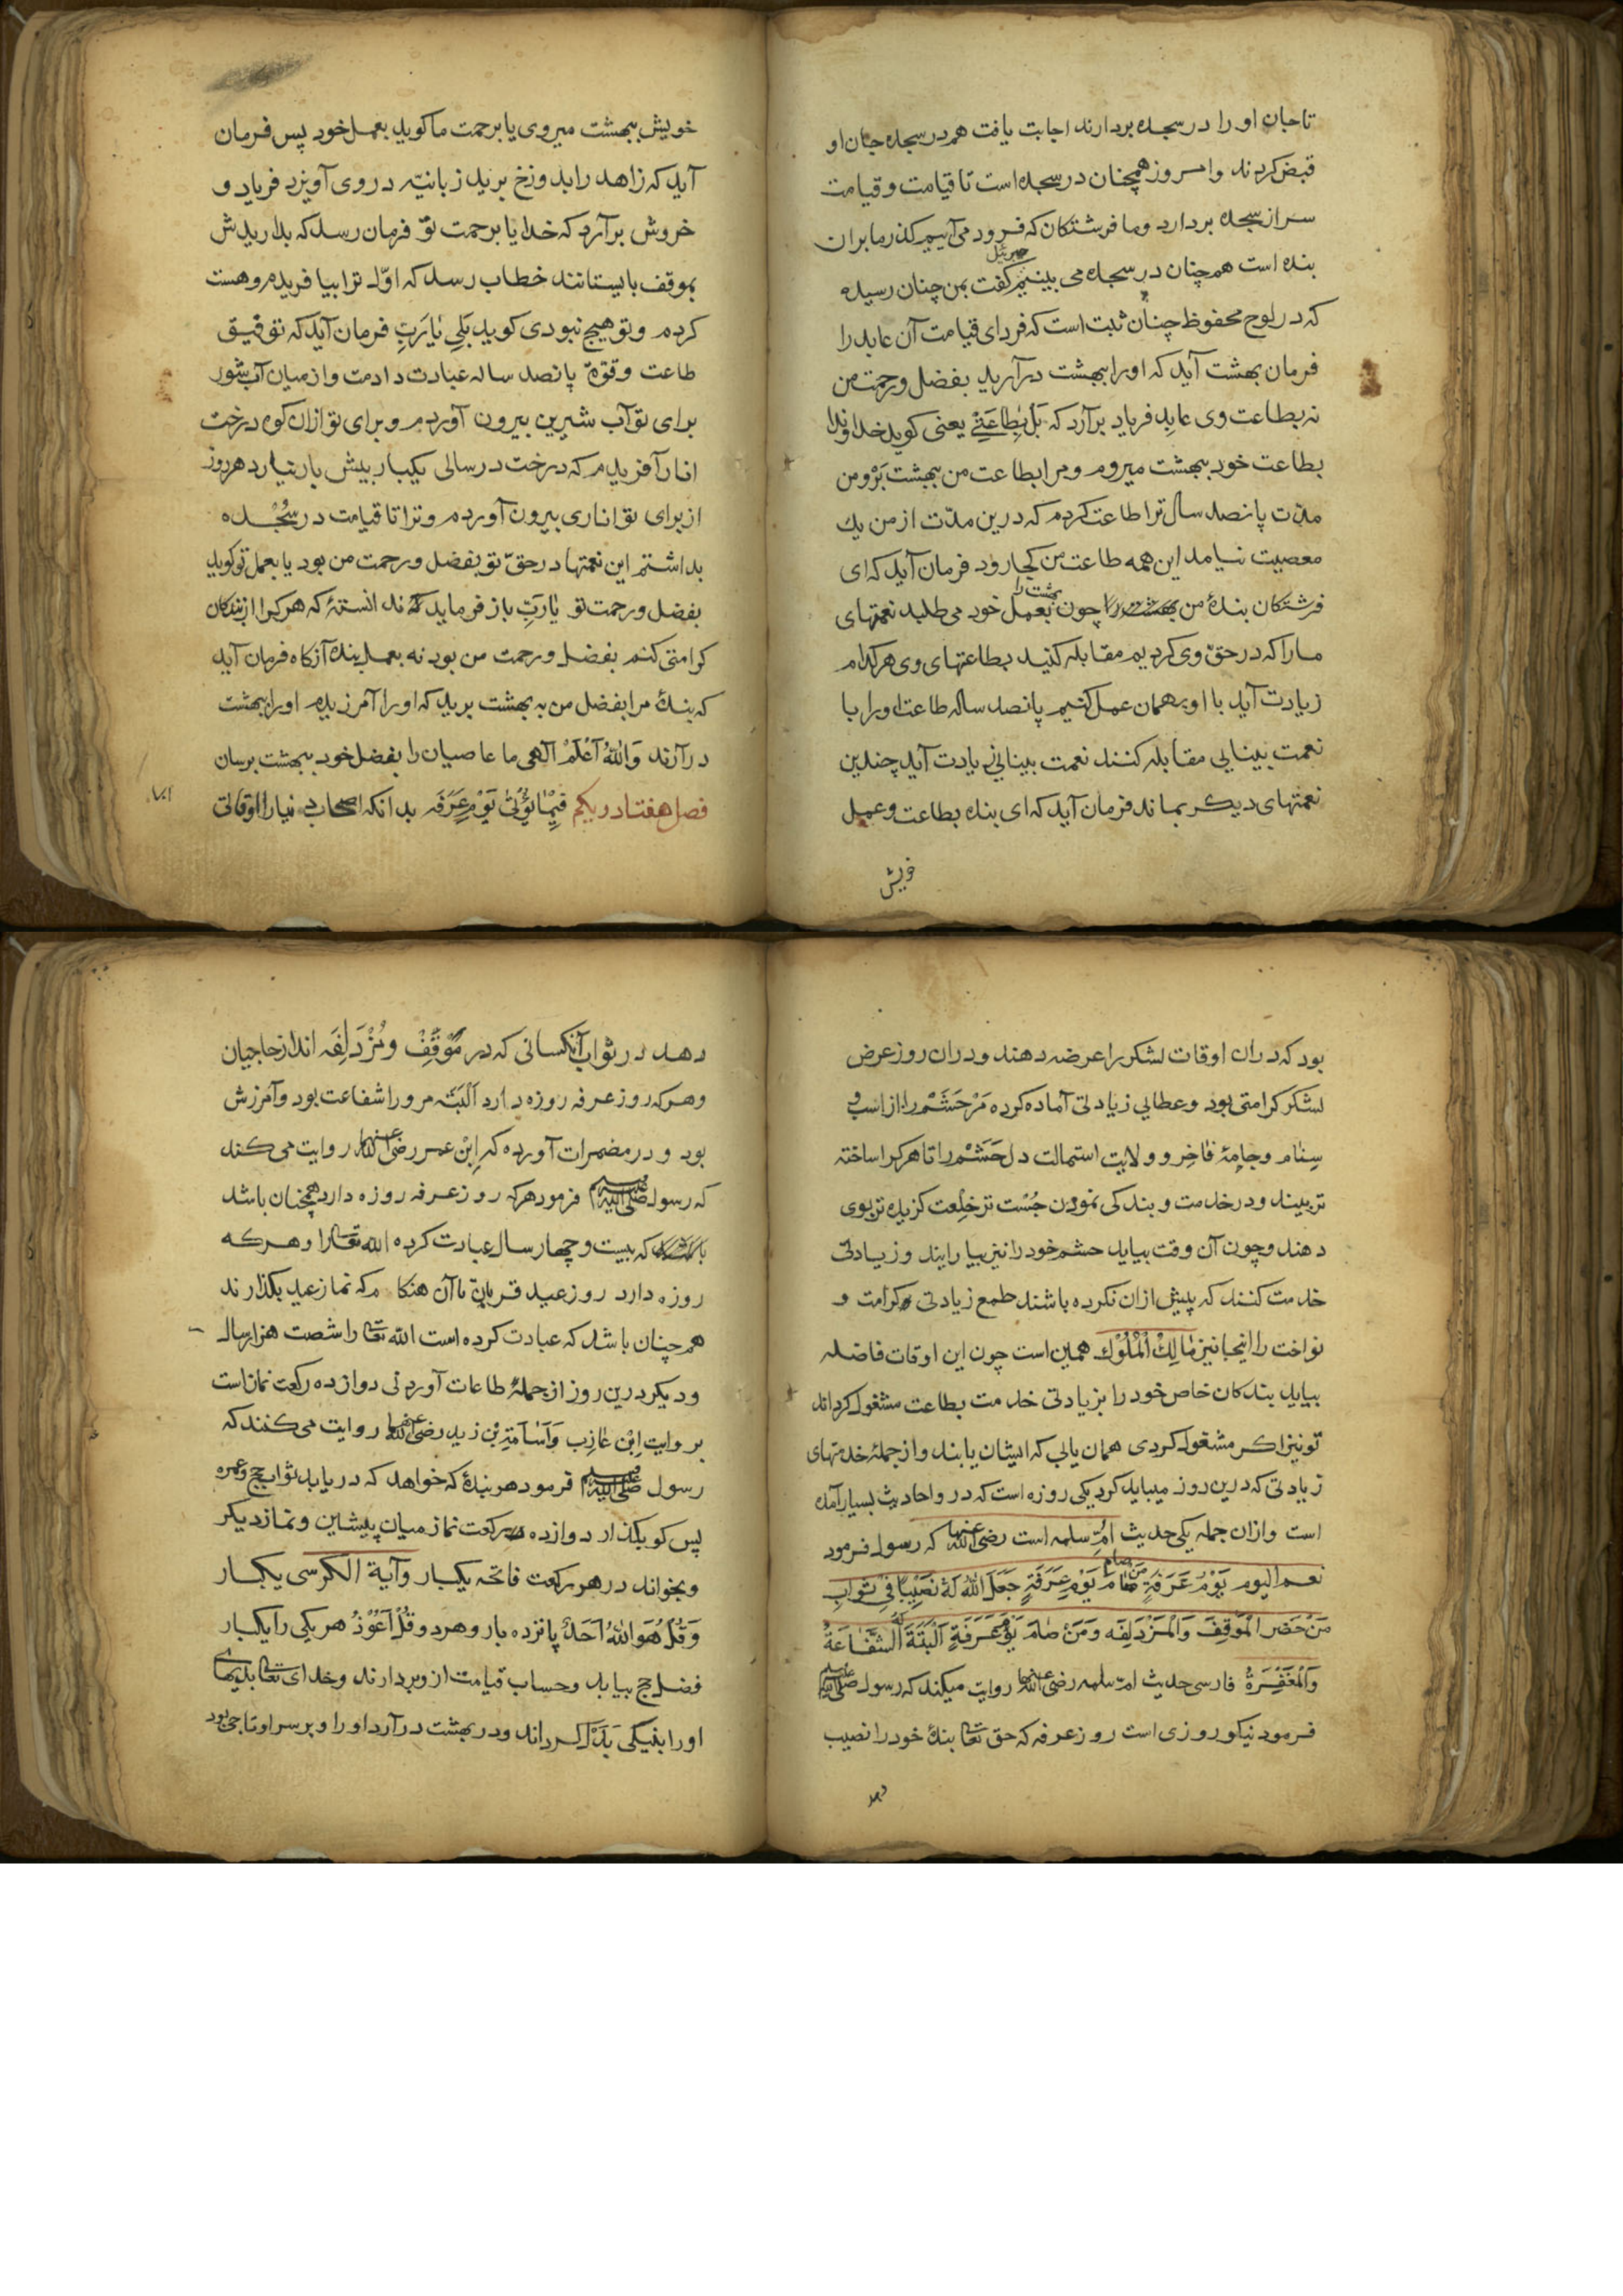 تا جان او را در سجده بردارند اجابت یافت هم در سجده جان او
قبض کردند و امروز همچنان در سجده است تا قیامت و قیامت
سر از سجده بردارد و ما فرشتکان که فرود می آییم کذر ما بران
بنده است همچنان در سجده می بینیم جبرئیل کفت بمن چنان رسیده
که در لوح محفوظ چنان ثبت است که فردای قیامت آن عابد را
فرمان بهشت آید که او را ببهشت درآرید بفضل و رحمت من
نه بطاعت وی عابد فریاد برآرد که بَلْ بِطَاعَتِیْ یعنی کوید خداوندا
بطاعت خود ببهشت میروم و مرا بطاعت من ببهشت بَرْ و من
مدّت پانصد سال ترا طاعت کردم که درین مدّت از من یك
معصیت نیامد این همه طاعت من کجا رود فرمان آید که ای
فرشتکان بندهٔ من بهشت را چون بعمل خود می طلبد نعمتهای
ما را که در حقّ وی کردیم مقابله کنید بطاعتهای وی هر کدام
زیادت آید با او بر همان عمل کنیم پانصد ساله طاعت او را با
نعمت بینایی مقابله کنند نعمت بینایی زیادت آید چندین
نعمتهای دیکر بماند فرمان آید که ای بنده بطاعت و عمل
خویش
خویش ببهشت میروی یا برحمت ما کوید بعمل خود پس فرمان
آید که زاهد را بدوزخ برید زبانیّه در وی آویزد فریاد و
خروش برآرد که خدایا برحمت توّ فرمان رسد که بداریدش
بموقف بایستانند خطاب رسد که اوّل ترا بیافریدم و هست
کردم و تو هیچ نبودی کوید بَلی یَا رَبِّ فرمان آید که توفیق
طاعت و قوّة پانصد ساله عبادت دادمت و از میان آب شور
برای تو آب شیرین بیرون آوردم و برای تو ازان کوه درخت
انار آفریدم که درخت در سالی یکبار بیش بار نیارد هر روز
از برای تو اناری بیرون آوردم و ترا تا قیامت در سجده
بداشتم این نعمتها در حقّ تو بفضل و رحمت من بود یا بعمل تو کوید
بفضل و رحمت تو یَا رَبِّ باز فرماید که ندانستهٔ که هر کرا از بندکان
کرامتی کنم بفضل و رحمت من بود نه بعمل بنده آنکاه فرمان آید
که بندهٔ مرا بفضل من به بهشت برید که او را آمرزیدم او را ببهشت
درآرند وَاللهُ اَعْلَمْ الهی ما عاصیان را بفضل خود ببهشت برسان
فصل هفتاد و یکم فِیْمَا یُؤْتٰی یَوْمَ عَرَفَه بدانکه اصحاب دنیا را اوقاتی
بود که دران اوقات لشکر را عرضه دهند و دران روز عرض
لشکر کرامتی بود و عطایی زیادتی آماده کرده مَرْ حَشَمْ را از اسب و
سِتام و جامهٔ فاخِر و ولایت استمالت دل حَشَمْ را تا هر کرا ساخته
تر بینند و در خدمت و بندکی نمودن جُست تر خِلْعت کزیده تر بوی
دهند و چون آن وقت بیاید حشم خود را نیز بیارایند و زیادتی
خدمت کنند که پیش ازان نکرده باشند طمع زیادتی کرامت و
نواخت را اینجا نیز مَالِكُ الْمُلُوْك همین است چون این اوقات فاضله
بیاید بندکان خاص خود را بزیادتی خدمت بطاعت مشغول کرداند
تو نیز اکر مشغول کردی همان یابی که ایشان یابند و از جملهٔ خدمتهای
زیادتی که درین روز میباید کرد یکی روزه است که درو احادیث بسیار آمده
است و ازان جمله یکی حدیث اُمّ سلمه است رضی الله عنها که رسول فرمود
نعم الیوم یَوْمُ عَرَفَةِ مَنْ صَامَ یَوْمِ عَرَفَةٍ جَعَلَ اللهُ لَهُ نَصِیْبًا فِیْ ثَوَابِ
مَنْ حَضَر الْمَوْقِفَ وَالْمَزْدَلِفَه وَمَنْ صَامَ یَوْمَ عَرَفَةٍ اَلْبَتَةَ لَهُ الشَّفَاعَةُ
وَالْمَغْفِرَةُ فارسی حدیث امّ سلمه رضی الله عنها روایت میکند که رسول صلی الله علیه وسلم
فرمود نیکو روزی است روز عرفه که حق تعالی بندهٔ خود را نصیب
دهد
دهد در ثواب آنکسانی که در مَوْقِفْ و مُزْدَلِفَه اند از حاجیان
و هر که روز عرفه روزه دارد اَلْبَتَّه مر ورا شفاعت بود و آمرزش
بود و در مضمرات آورده که اِبْن عمر رضی الله عنهما روایت می کند
که رسول صلی الله علیه وسلم فرمود هر که روز عرفه روزه دارد همچنان باشد
که بیست و چهار سال عبادت کرده الله تعالی را و هر که
روزه دارد روز عید قربان تا آن هنکام که نماز عید بکذارند
همچنان باشد که عبادت کرده است الله تعالی را شصت هزار سال
و دیکر درین روز از جملهٔ طاعات آوردنی دوازده رکعت نماز است
بروایت اِبْن عَازِب وَ اُسَامَة بْن زید رضی الله عنهما روایت می کنند که
رسول صلی الله علیه وسلم فرمود هر بندهٔ که خواهد که دریابد ثواب حج و عمره
پس کو بکذار دوازده رکعت نماز میان پیشین و نماز دیکر
و بخواند در هر رکعت فاتحه یکبار و آیة الکرسی یکبار
وَ قُلْ هُوَ اللهُ اَحَدْ پانزده بار و هر دو قُلْ اَعُوْذُ هر یکی را یکبار
فضل حج بیابد و حساب قیامت ازو بردارند و خدای تعالی بدیهای
او را بنیکی بَدَلْ کرداند و در بهشت درآرد او را و بر سر او تاجی بود